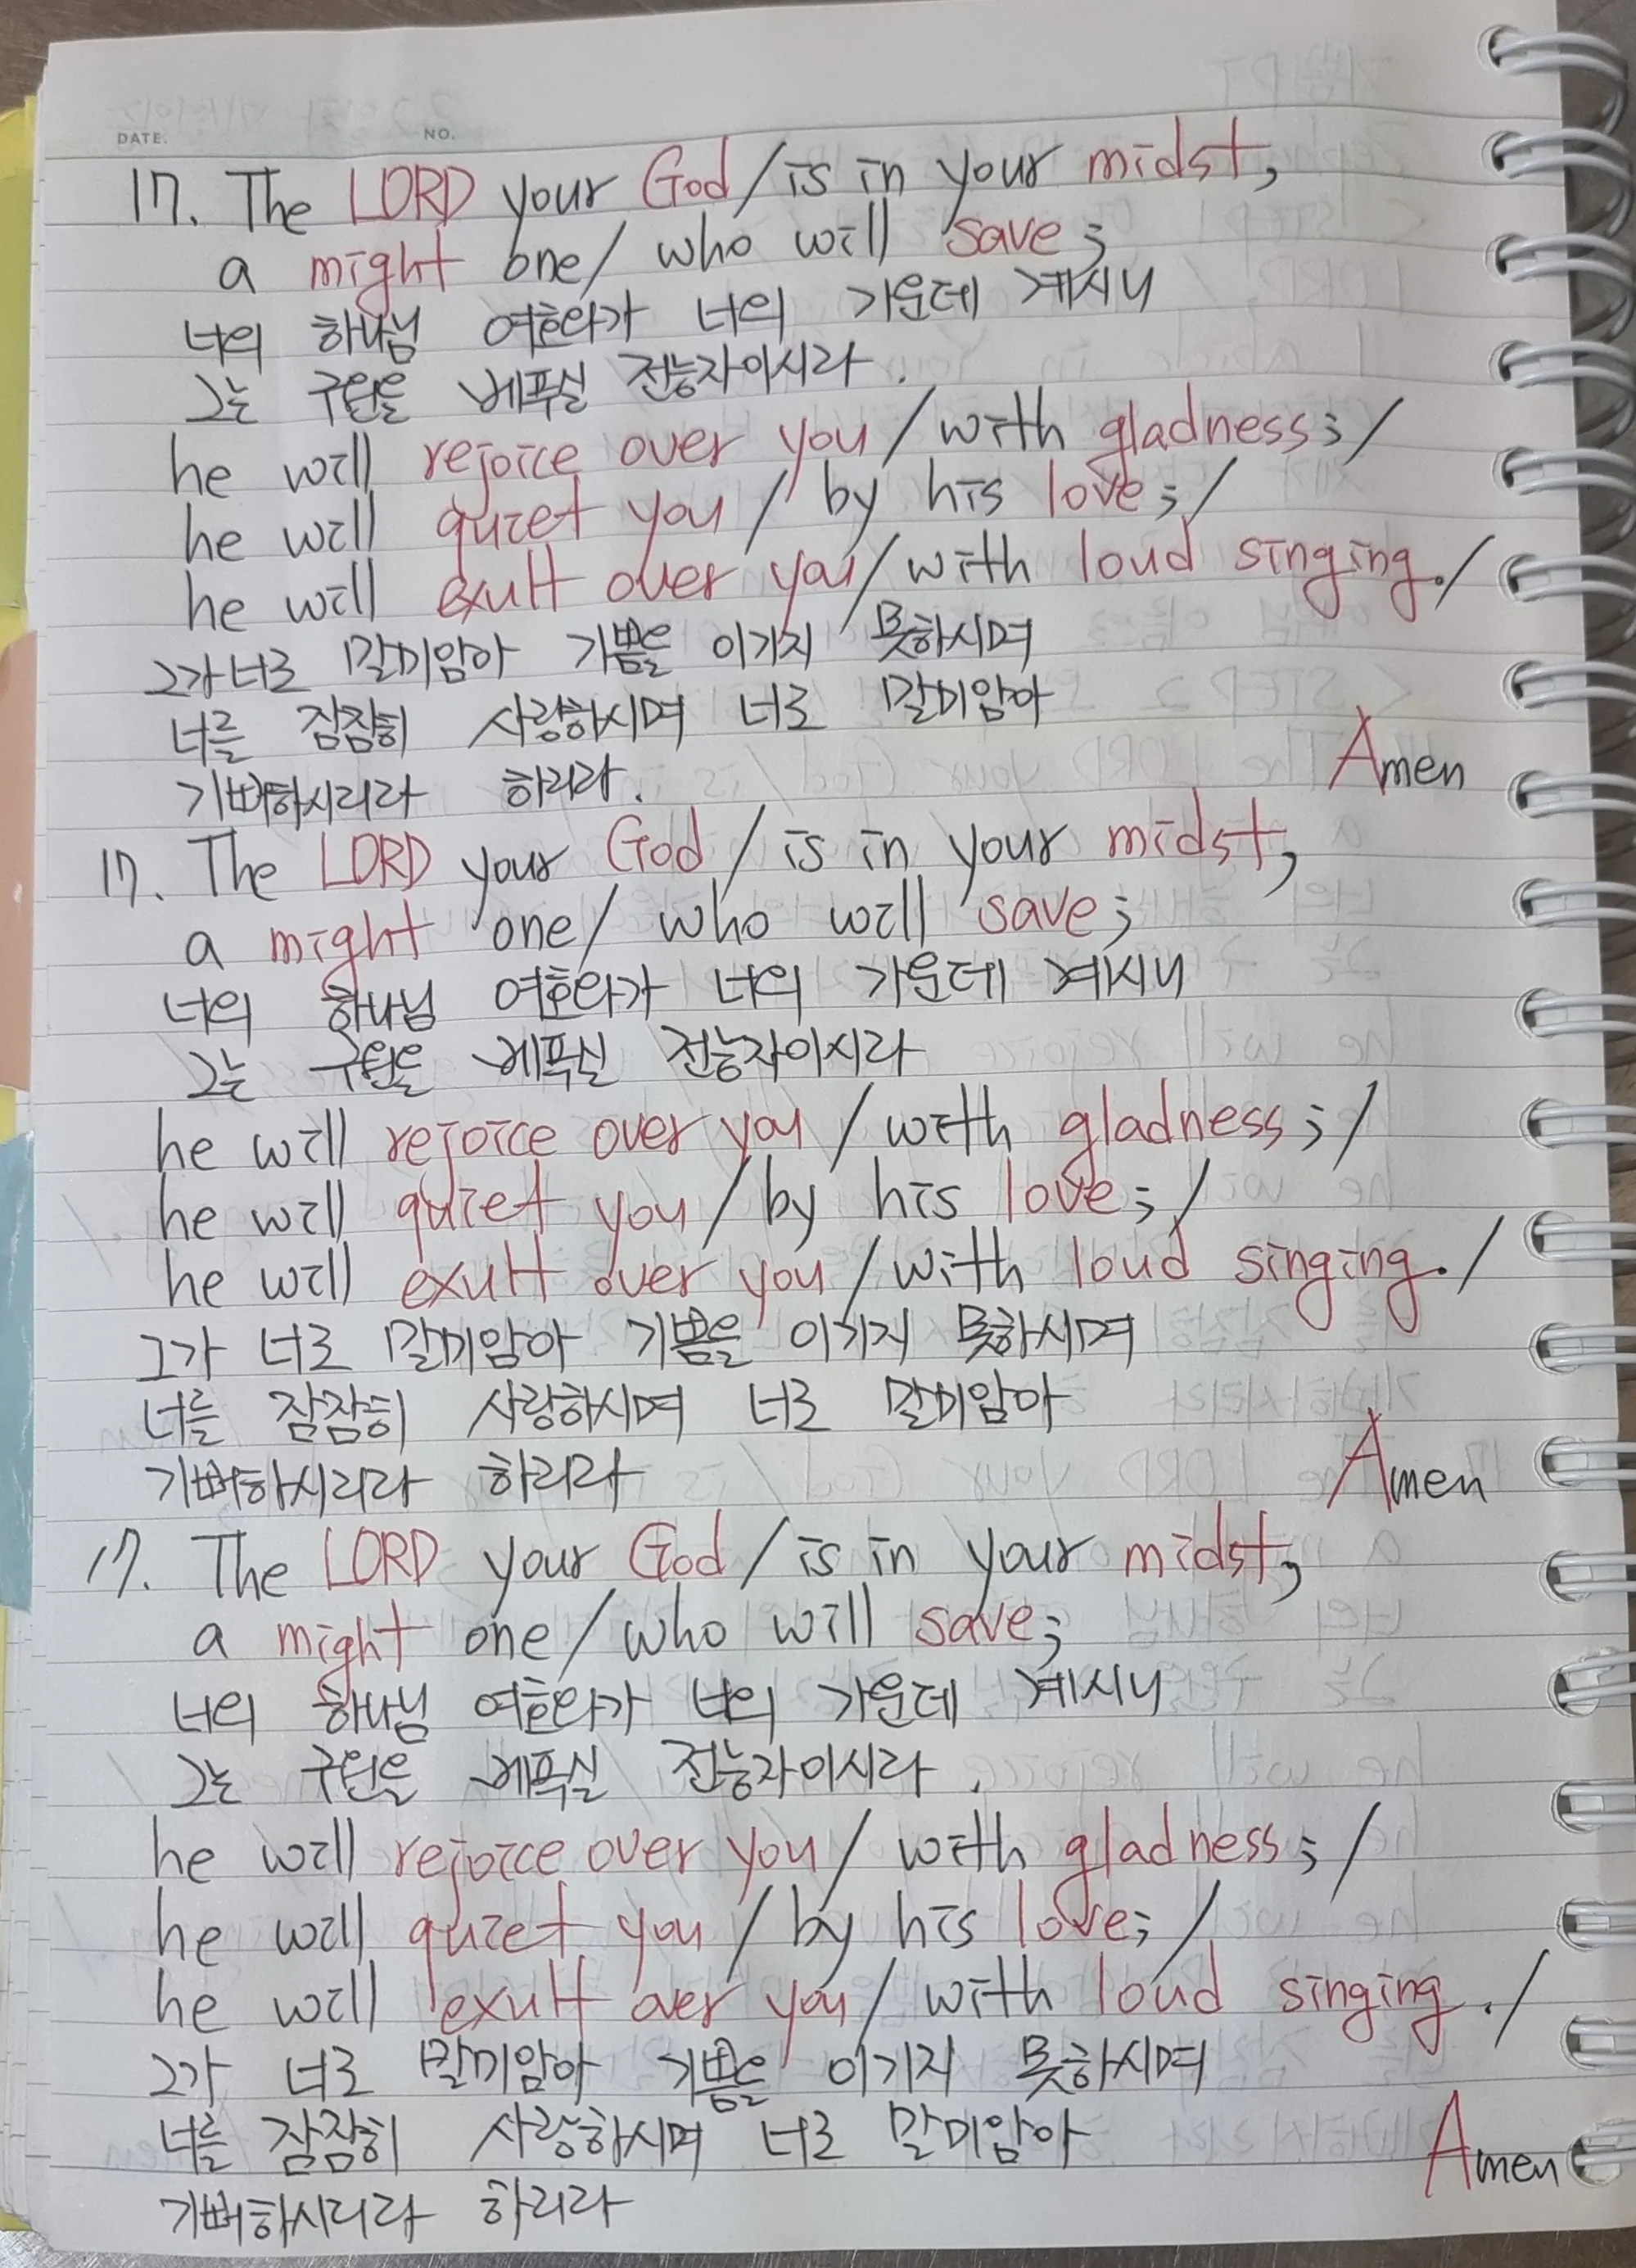 DATE. NO.
17. The LORD your God / is in your midst,
a might one / who will save;
너의 하나님 여호와가 너의 가운데 계시니
그는 구원을 베푸실 전능자이시라.
he will rejoice over you / with gladness; /
he will quiet you / by his love; /
he will exult over you / with loud singing. /
그가 너로 말미암아 기쁨을 이기지 못하시며
너를 잠잠히 사랑하시며 너로 말미암아
기뻐하시리라 하리라. Amen
17. The LORD your God / is in your midst,
a might one / who will save;
너의 하나님 여호와가 너의 가운데 계시니
그는 구원을 베푸실 전능자이시라
he will rejoice over you / with gladness; /
he will quiet you / by his love; /
he will exult over you / with loud singing. /
그가 너로 말미암아 기쁨을 이기지 못하시며
너를 잠잠히 사랑하시며 너로 말미암아
기뻐하시리라 하리라 Amen
17. The LORD your God / is in your midst,
a might one / who will save;
너의 하나님 여호와가 너의 가운데 계시니
그는 구원을 베푸실 전능자이시라.
he will rejoice over you / with gladness; /
he will quiet you / by his love; /
he will exult over you / with loud singing. /
그가 너로 말미암아 기쁨을 이기지 못하시며
너를 잠잠히 사랑하시며 너로 말미암아
기뻐하시리라 하리라 Amen